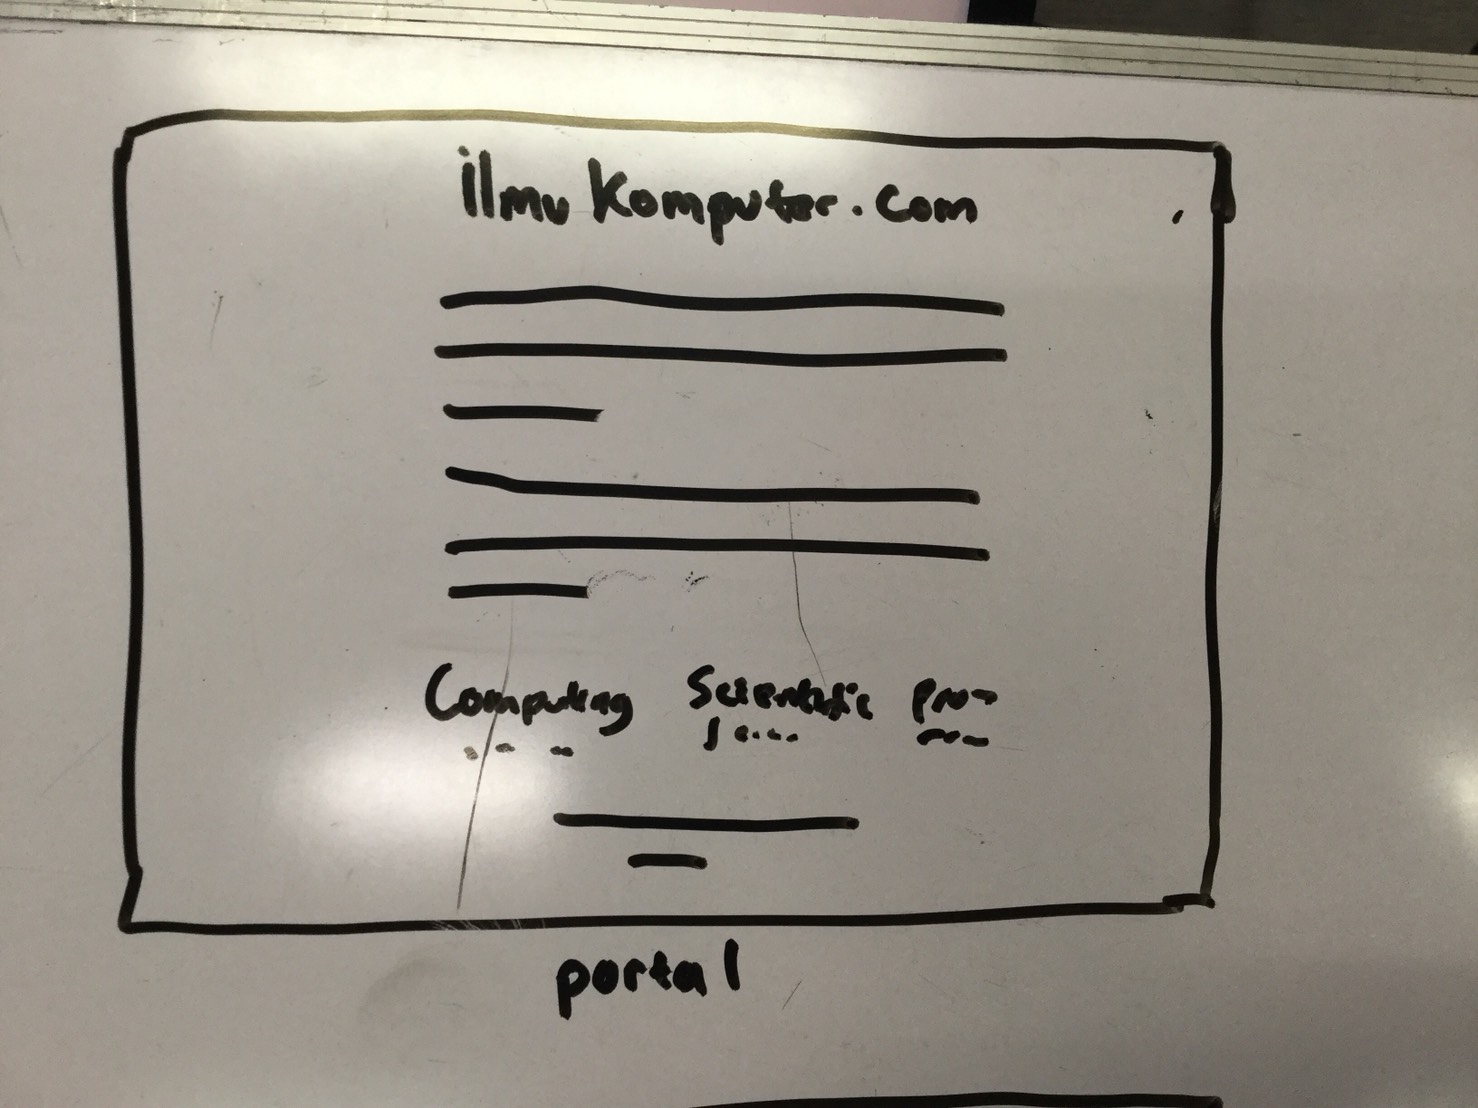 ilmu Komputer.com
Computing Scientific
portal